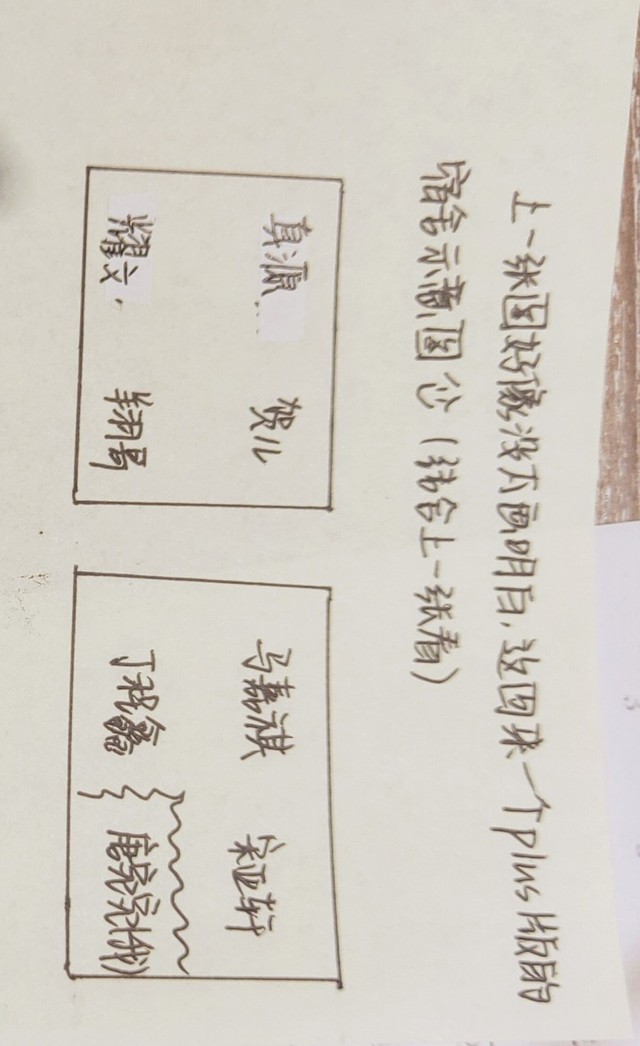 上一张图好像没大画明白,这回来一个plus版的
宿舍示意图 (结合上一张看)
真源 贺儿
耀文. 翔哥
马嘉祺 宋亚轩
丁程鑫